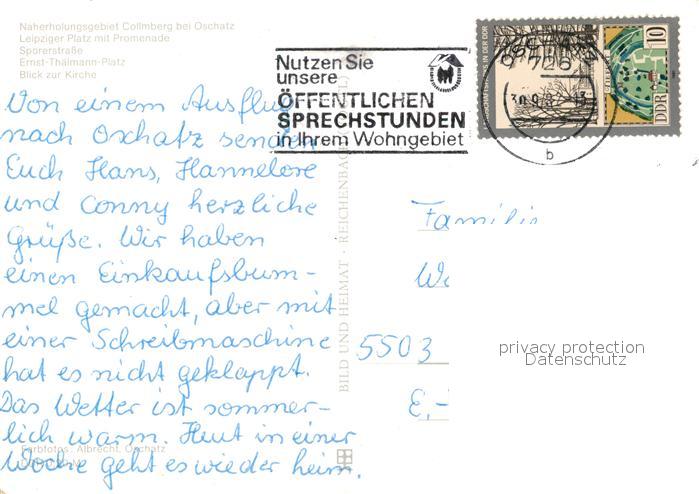 Naherholungsgebiet Collmberg bei Oschatz
Leipziger Platz mit Promenade
Sporerstraße
Ernst-Thälmann-Platz
Blick zur Kirche
Nutzen Sie
unsere
ÖFFENTLICHEN
SPRECHSTUNDEN
in Ihrem Wohngebiet
726
b
10
DDR
Von einem Ausflug
nach Oschatz senden
Euch Hans, Hannelore
und Conny herzliche
Grüße. Wir haben
einen Einkaufsbum-
mel gemacht, aber mit
einer Schreibmaschine
hat es nicht geklappt.
Das Wetter ist sommer-
lich warm. Heut in einer
Woche geht es wieder heim.
Farbfotos: Albrecht, Oschatz
BILD UND HEIMAT · REICHENBACH
Familie
5503
privacy protection
Datenschutz